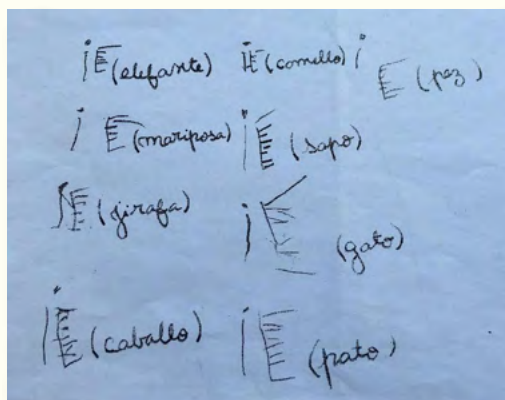 iE (elefante) iE (comello) i E (pez)
i E (mariposa) iE (sapo)
iE (girafa) iE (gato)
iE (caballo) iE (pato)